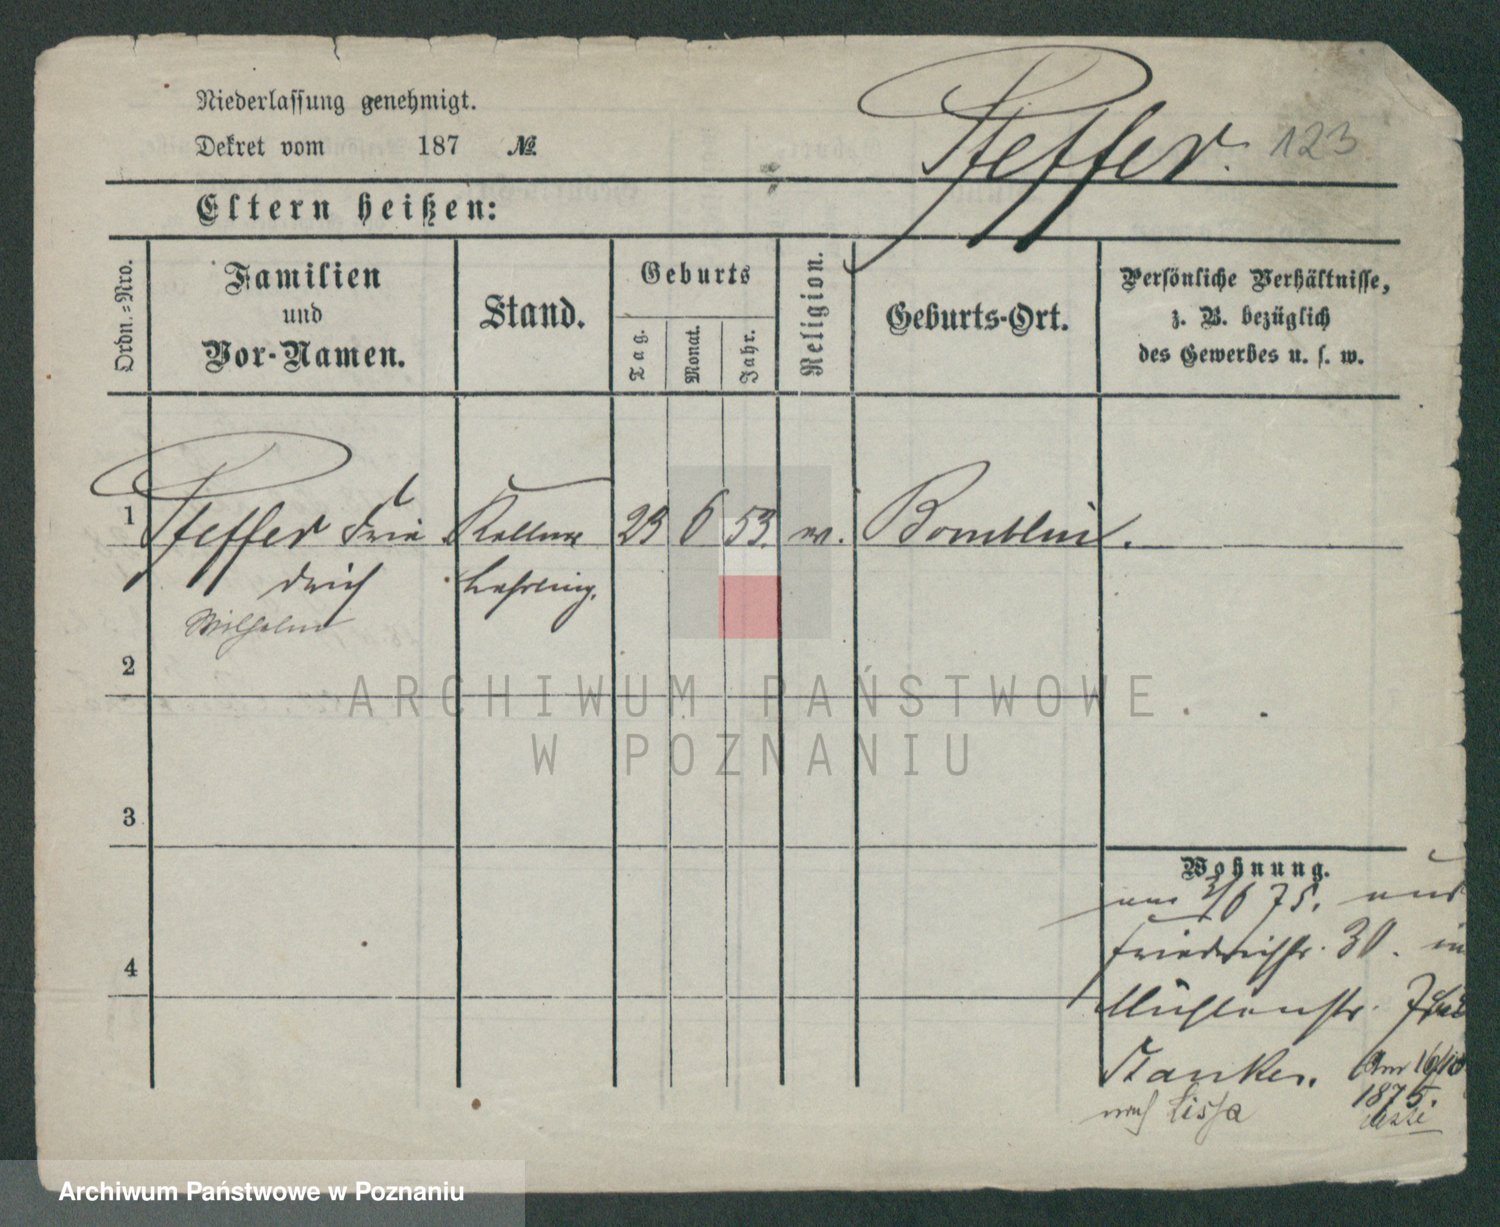 Niederlassung genehmigt.
Dekret vom 187 №
Pfeffer. 123
Eltern heißen:
Ordn.-Nro.
Familien
und
Vor-Namen.
Stand.
Geburts
Tag.
Monat.
Jahr.
Religion.
Geburts-Ort.
Persönliche Verhältnisse,
z. B. bezüglich
des Gewerbes u. s. w.
1 Pfeffer Frie Kellner 23 6 53. ev. Bomblin.
drich Lehrling.
Wilhelm
2
3
4
Wohnung.
am 3/6 75. aus
Friedrichstr. 30. in
Mühlenstr. 7 bei
Stanke. Am 16/10
nach Lissa 1875.
ARCHIWUM PAŃSTWOWE
W POZNANIU
Archiwum Państwowe w Poznaniu